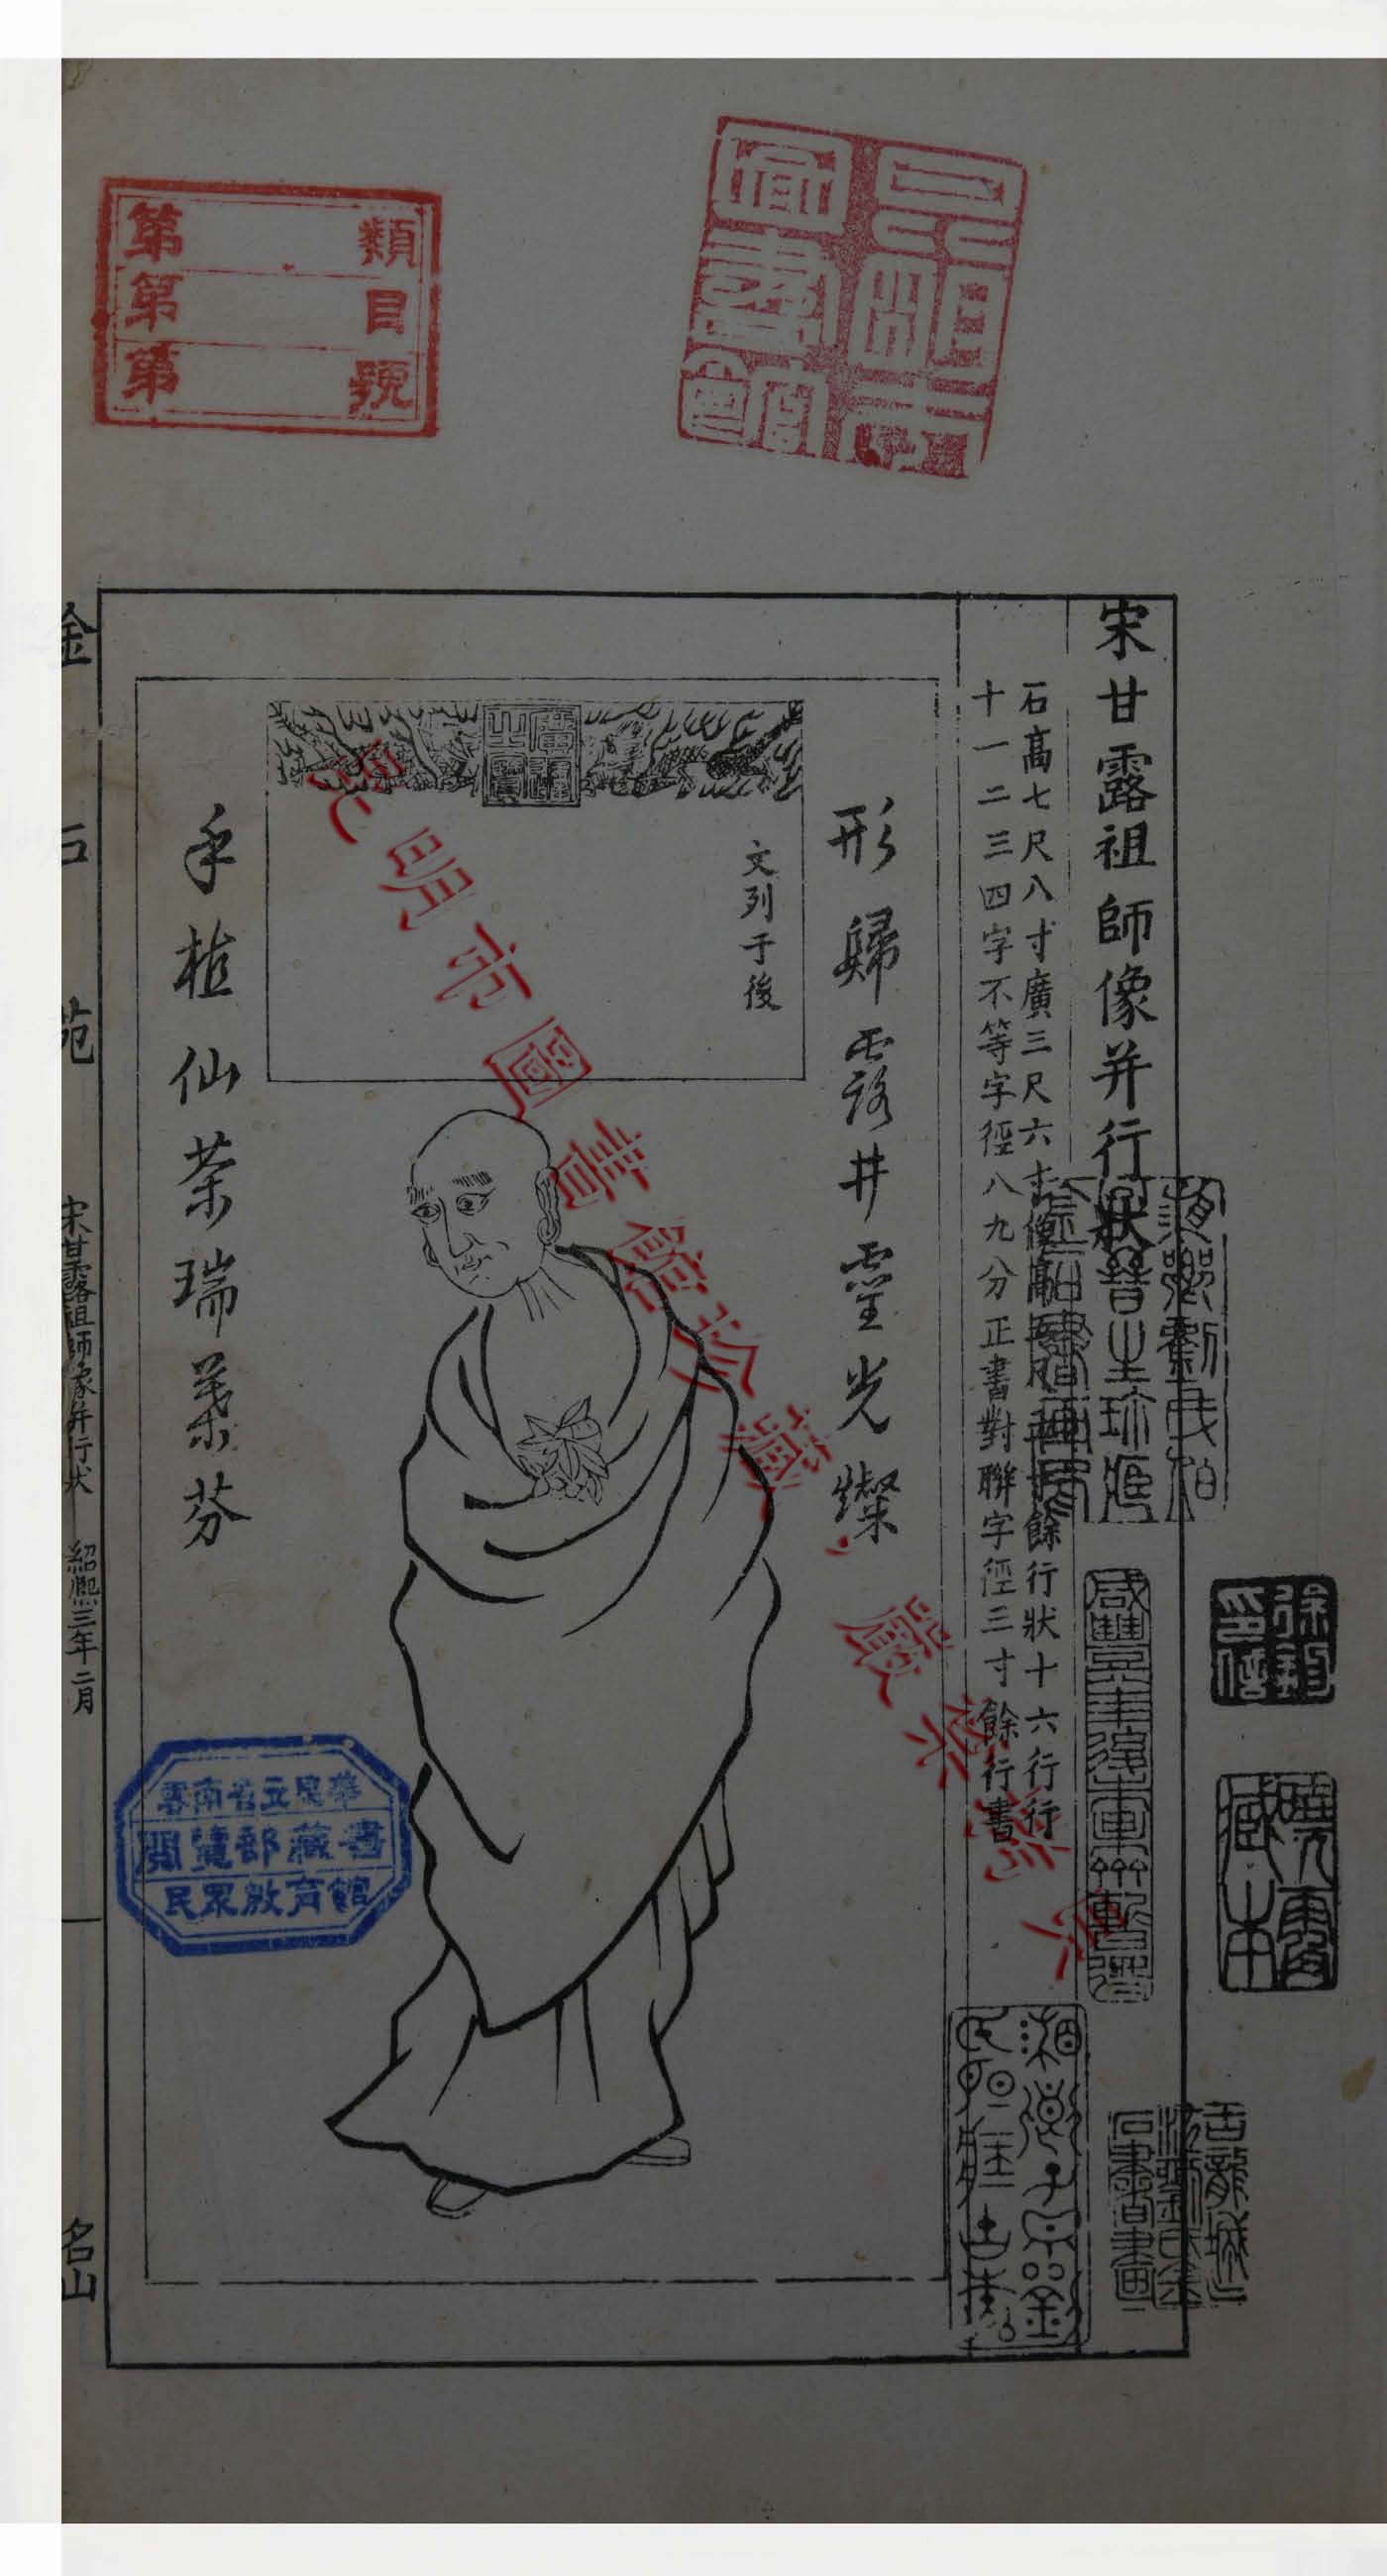 宋甘露祖師像并行狀
石高七尺八寸廣三尺六寸像高五尺五寸餘行狀十六行行
十一二三四字不等字徑八九分正書對聯字徑三寸餘行書
形歸露井靈光燦
文列于後
手植仙茶瑞葉芬
廣福之寶
金石苑
宋甘露祖師像并行狀 紹熙三年二月
名山
類 第
目 第
號 第
昆明市圖書館
雲南省立昆華
民眾教育館
閱覽部藏書
昆明市圖書館珍藏，嚴禁翻印